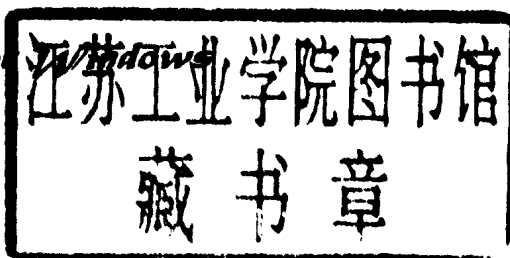 Windows
江苏工业学院图书馆
藏书章